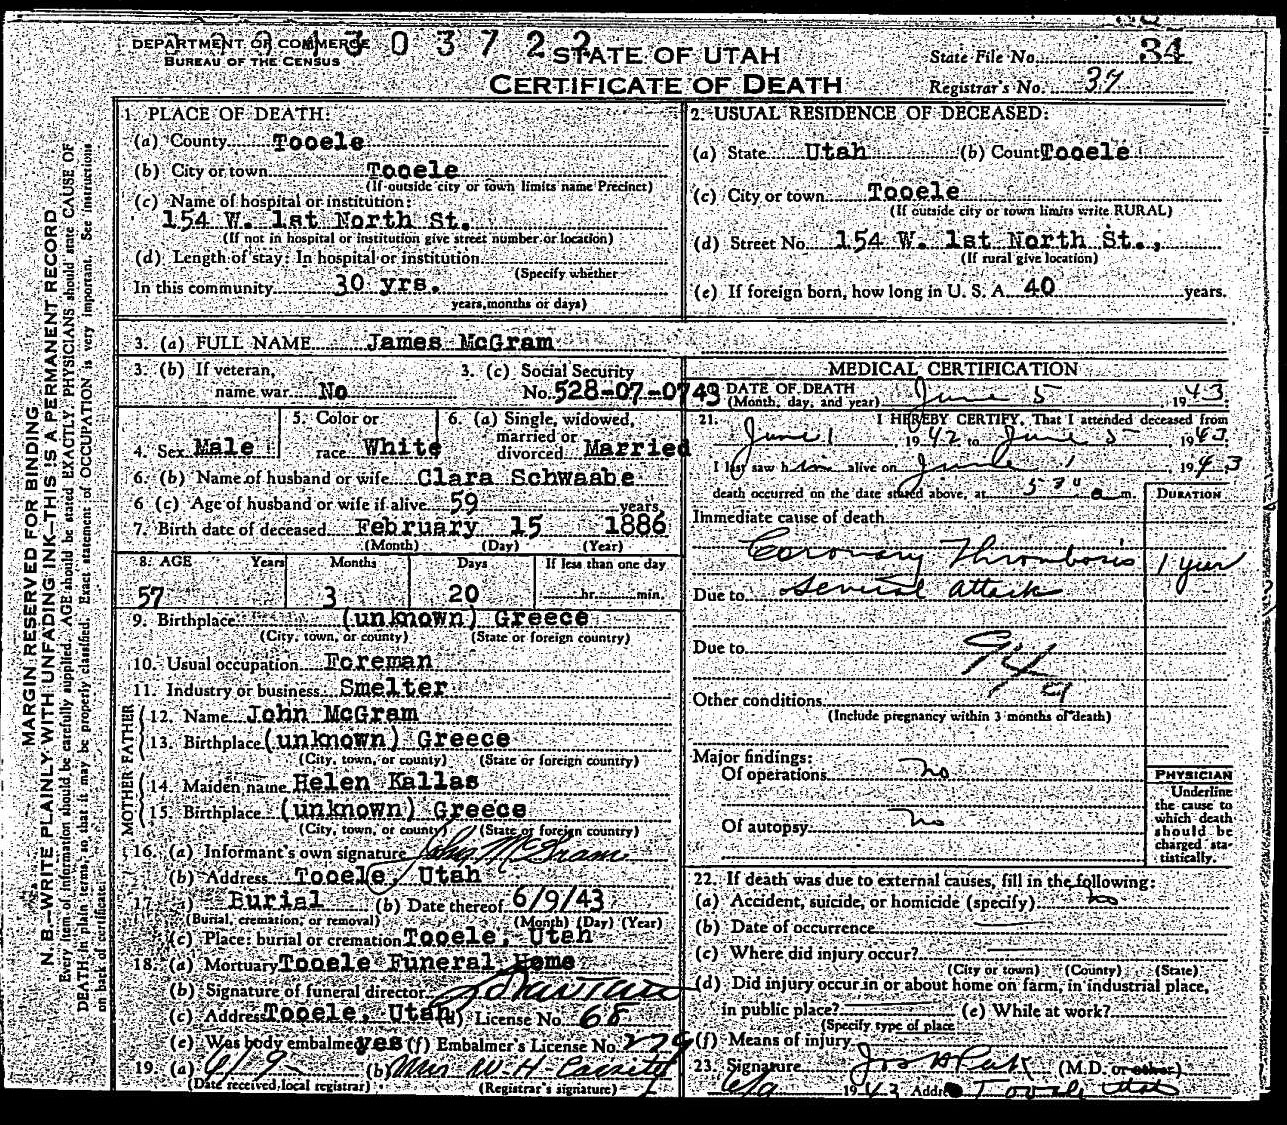 DEPARTMENT OF COMMERCE
BUREAU OF THE CENSUS
4303722
STATE OF UTAH
CERTIFICATE OF DEATH
State File No. 34
Registrar's No. 37
MARGIN RESERVED FOR BINDING
N. B.—WRITE PLAINLY WITH UNFADING INK—THIS IS A PERMANENT RECORD
Every item of information should be carefully supplied. AGE should be stated EXACTLY. PHYSICIANS should state CAUSE OF
DEATH in plain terms, so that it may be properly classified. Exact statement of OCCUPATION is very important. See instructions
on back of certificate.
1. PLACE OF DEATH:
(a) County Tooele
(b) City or town Tooele
(If outside city or town limits name Precinct)
(c) Name of hospital or institution:
154 W. 1st North St.
(If not in hospital or institution give street number or location)
(d) Length of stay: In hospital or institution
(Specify whether
In this community 30 yrs.
years, months or days)
2. USUAL RESIDENCE OF DECEASED:
(a) State Utah (b) Count Tooele
(c) City or town Tooele
(If outside city or town limits write RURAL)
(d) Street No. 154 W. 1st North St.,
(If rural give location)
(e) If foreign born, how long in U. S. A. 40 years.
3. (a) FULL NAME James McGram
3. (b) If veteran,
name war No
3. (c) Social Security
No. 528-07-0743
4. Sex Male
5. Color or
race White
6. (a) Single, widowed,
married or
divorced Married
6. (b) Name of husband or wife Clara Schwaabe
6 (c) Age of husband or wife if alive 59 years
7. Birth date of deceased February 15 1886
(Month) (Day) (Year)
8. AGE Years Months Days If less than one day
57 3 20 hr. min.
9. Birthplace (unknown) Greece
(City, town, or county) (State or foreign country)
10. Usual occupation Foreman
11. Industry or business Smelter
FATHER
12. Name John McGram
13. Birthplace (unknown) Greece
(City, town, or county) (State or foreign country)
MOTHER
14. Maiden name Helen Kallas
15. Birthplace (unknown) Greece
(City, town, or county) (State or foreign country)
16. (a) Informant's own signature McGram
(b) Address Tooele, Utah
17. Burial (b) Date thereof 6/9/43
(Burial, cremation, or removal) (Month) (Day) (Year)
(c) Place: burial or cremation Tooele, Utah
18. (a) Mortuary Tooele Funeral Home
(b) Signature of funeral director
(c) Address Tooele, Utah (d) License No. 68
(e) Was body embalmed yes (f) Embalmer's License No. 229
19. (a) 6/9 (b) Mrs W. H. Cassity
(Date received local registrar) (Registrar's signature)
MEDICAL CERTIFICATION
DATE OF DEATH
(Month, day, and year) June 5, 1943
21. I HEREBY CERTIFY, That I attended deceased from
June 1, 1942 to June 5, 1943
I last saw him alive on June 1, 1943
death occurred on the date stated above, at 5 a m.
DURATION
Immediate cause of death
Coronary Thrombosis 1 year
Due to Several Attack
Due to
94a
Other conditions
(Include pregnancy within 3 months of death)
Major findings:
Of operations no
Of autopsy no
PHYSICIAN
Underline
the cause to
which death
should be
charged sta-
tistically.
22. If death was due to external causes, fill in the following:
(a) Accident, suicide, or homicide (specify) no
(b) Date of occurrence
(c) Where did injury occur?
(City or town) (County) (State)
(d) Did injury occur in or about home on farm, in industrial place,
in public place? (e) While at work?
(Specify type of place
(f) Means of injury
23. Signature Jos H Peck (M.D. or other)
6/9 1943 Addre Tooele Utah